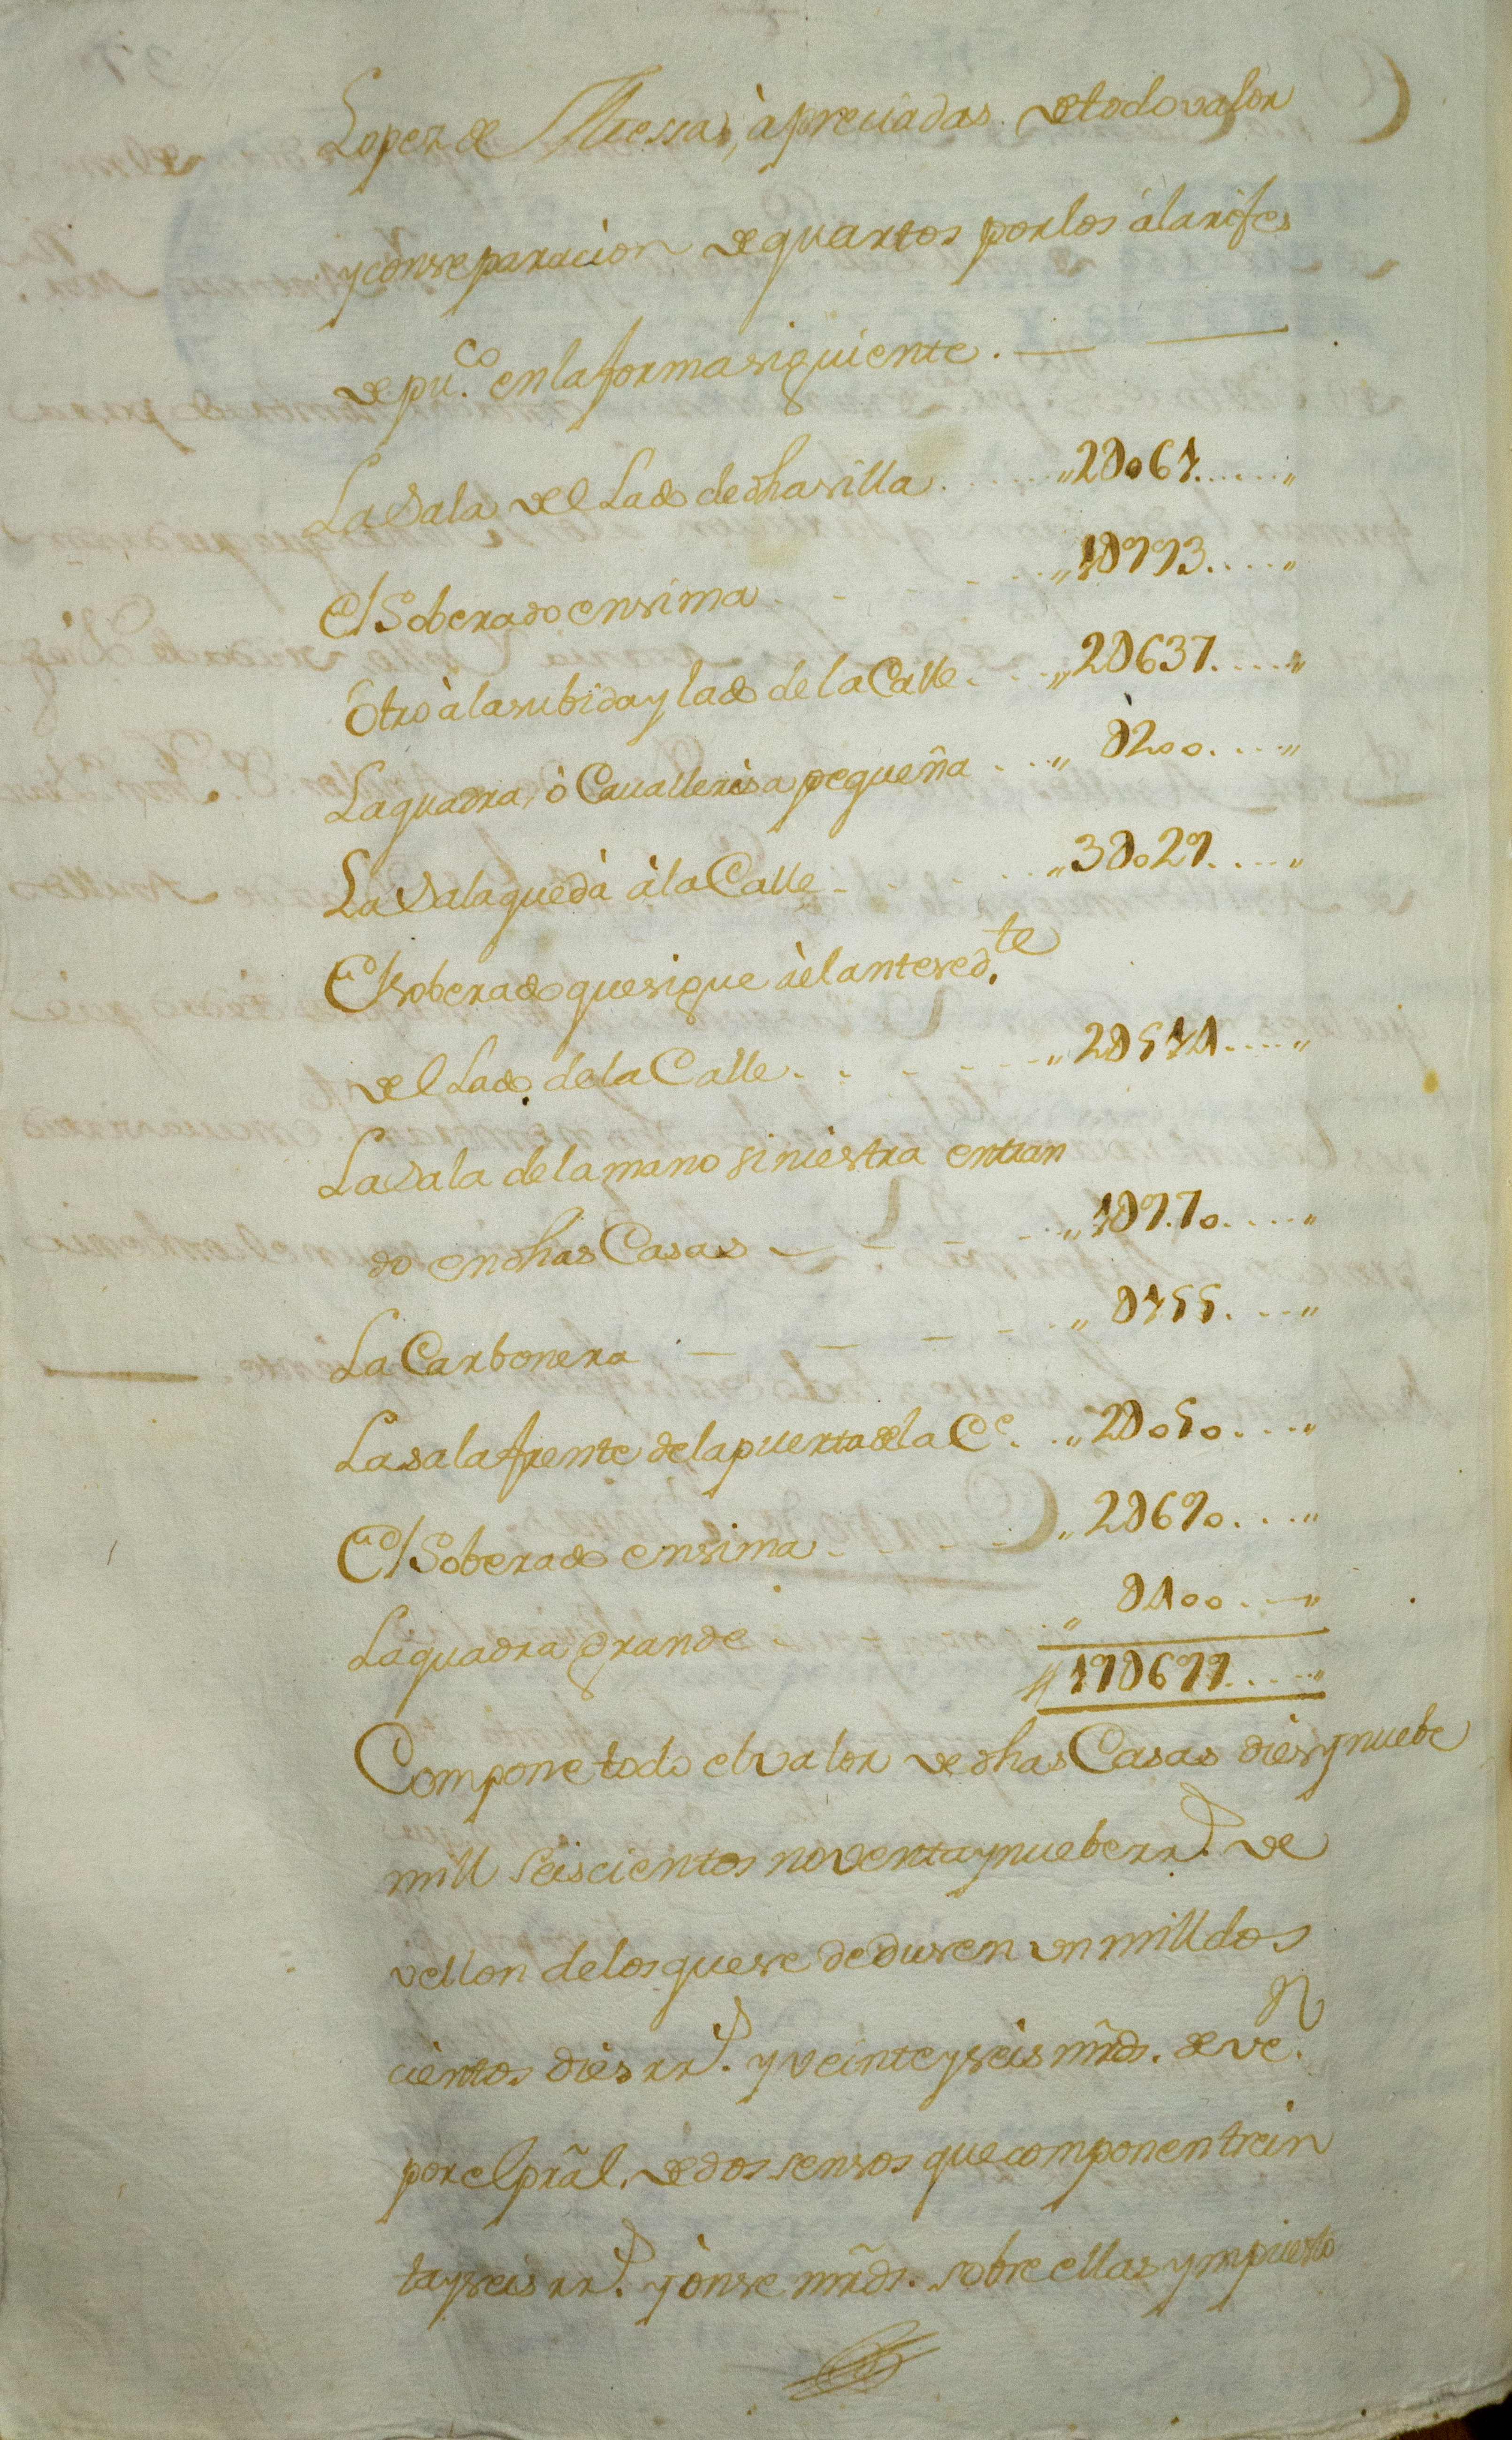 Lopez de Messa, à preciadas de todo valor
y con separacion de quartos por los àlarifes
de pu.co en la forma siguiente.
La Sala del Lado de dha silla ,, 2D061 ,,
El Soberado ensima ,, 1D993 ,,
Otro à la subida y lado de la Calle ,, 2D637 ,,
La quadra, ò Cauallerisa pequeña ,, D200 ,,
La Sala que dà à la Calle ,, 3D029 ,,
El soberado que sigue àel antesed.te
del Lado de la Calle ,, 2D514 ,,
La Sala de la mano siniestra entran
do en dhas Casas ,, 1D970 ,,
La Carbonera ,, D155 ,,
La sala frente de la puerta de la C.e ,, 2D050 ,,
El Soberado ensima ,, 2D690 ,,
La quadra grande ,, D400 ,,
19D699 ,,
Compone todo el valor de dhas Casas dies y nuebe
mill seiscientos noventa y nuebe rr.s de
vellon de los que se dedusen vn mill dos
cientos dies rr.s y veinte y seis mrds. de ve.n
por el prãl. de dos sensos que componen trein
ta y seis rr.s y ònse mrds. sobre ellas ympuesto